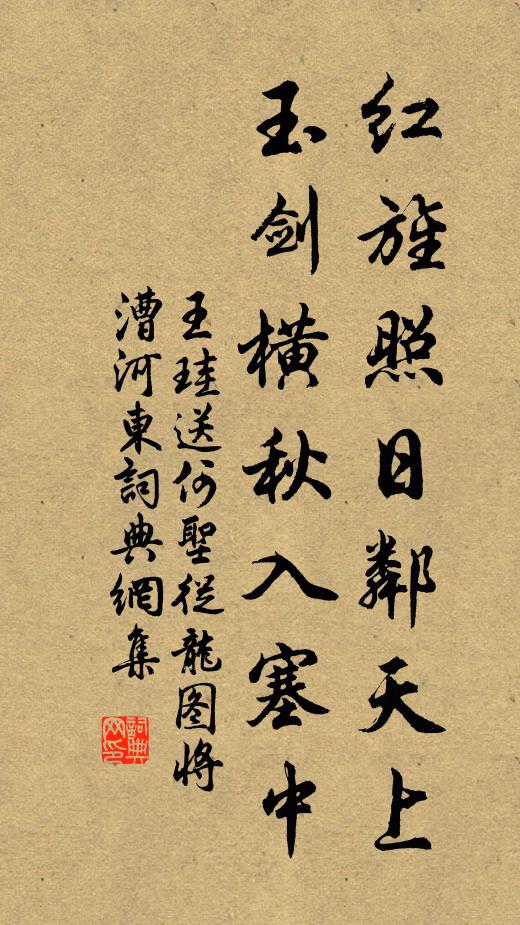 红旌照日鄰天上
玉剑横秋入塞中
王珪送何聖從龍图将
漕河東詞典網集
詞典网印